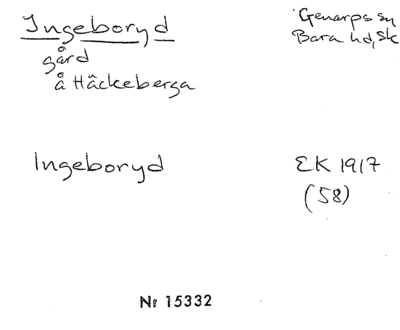 Ingeboryd
gård
å Häckeberga
Genarps sn
Bara hd, Sk
Ingeboryd
EK 1917
(58)
Nr 15332